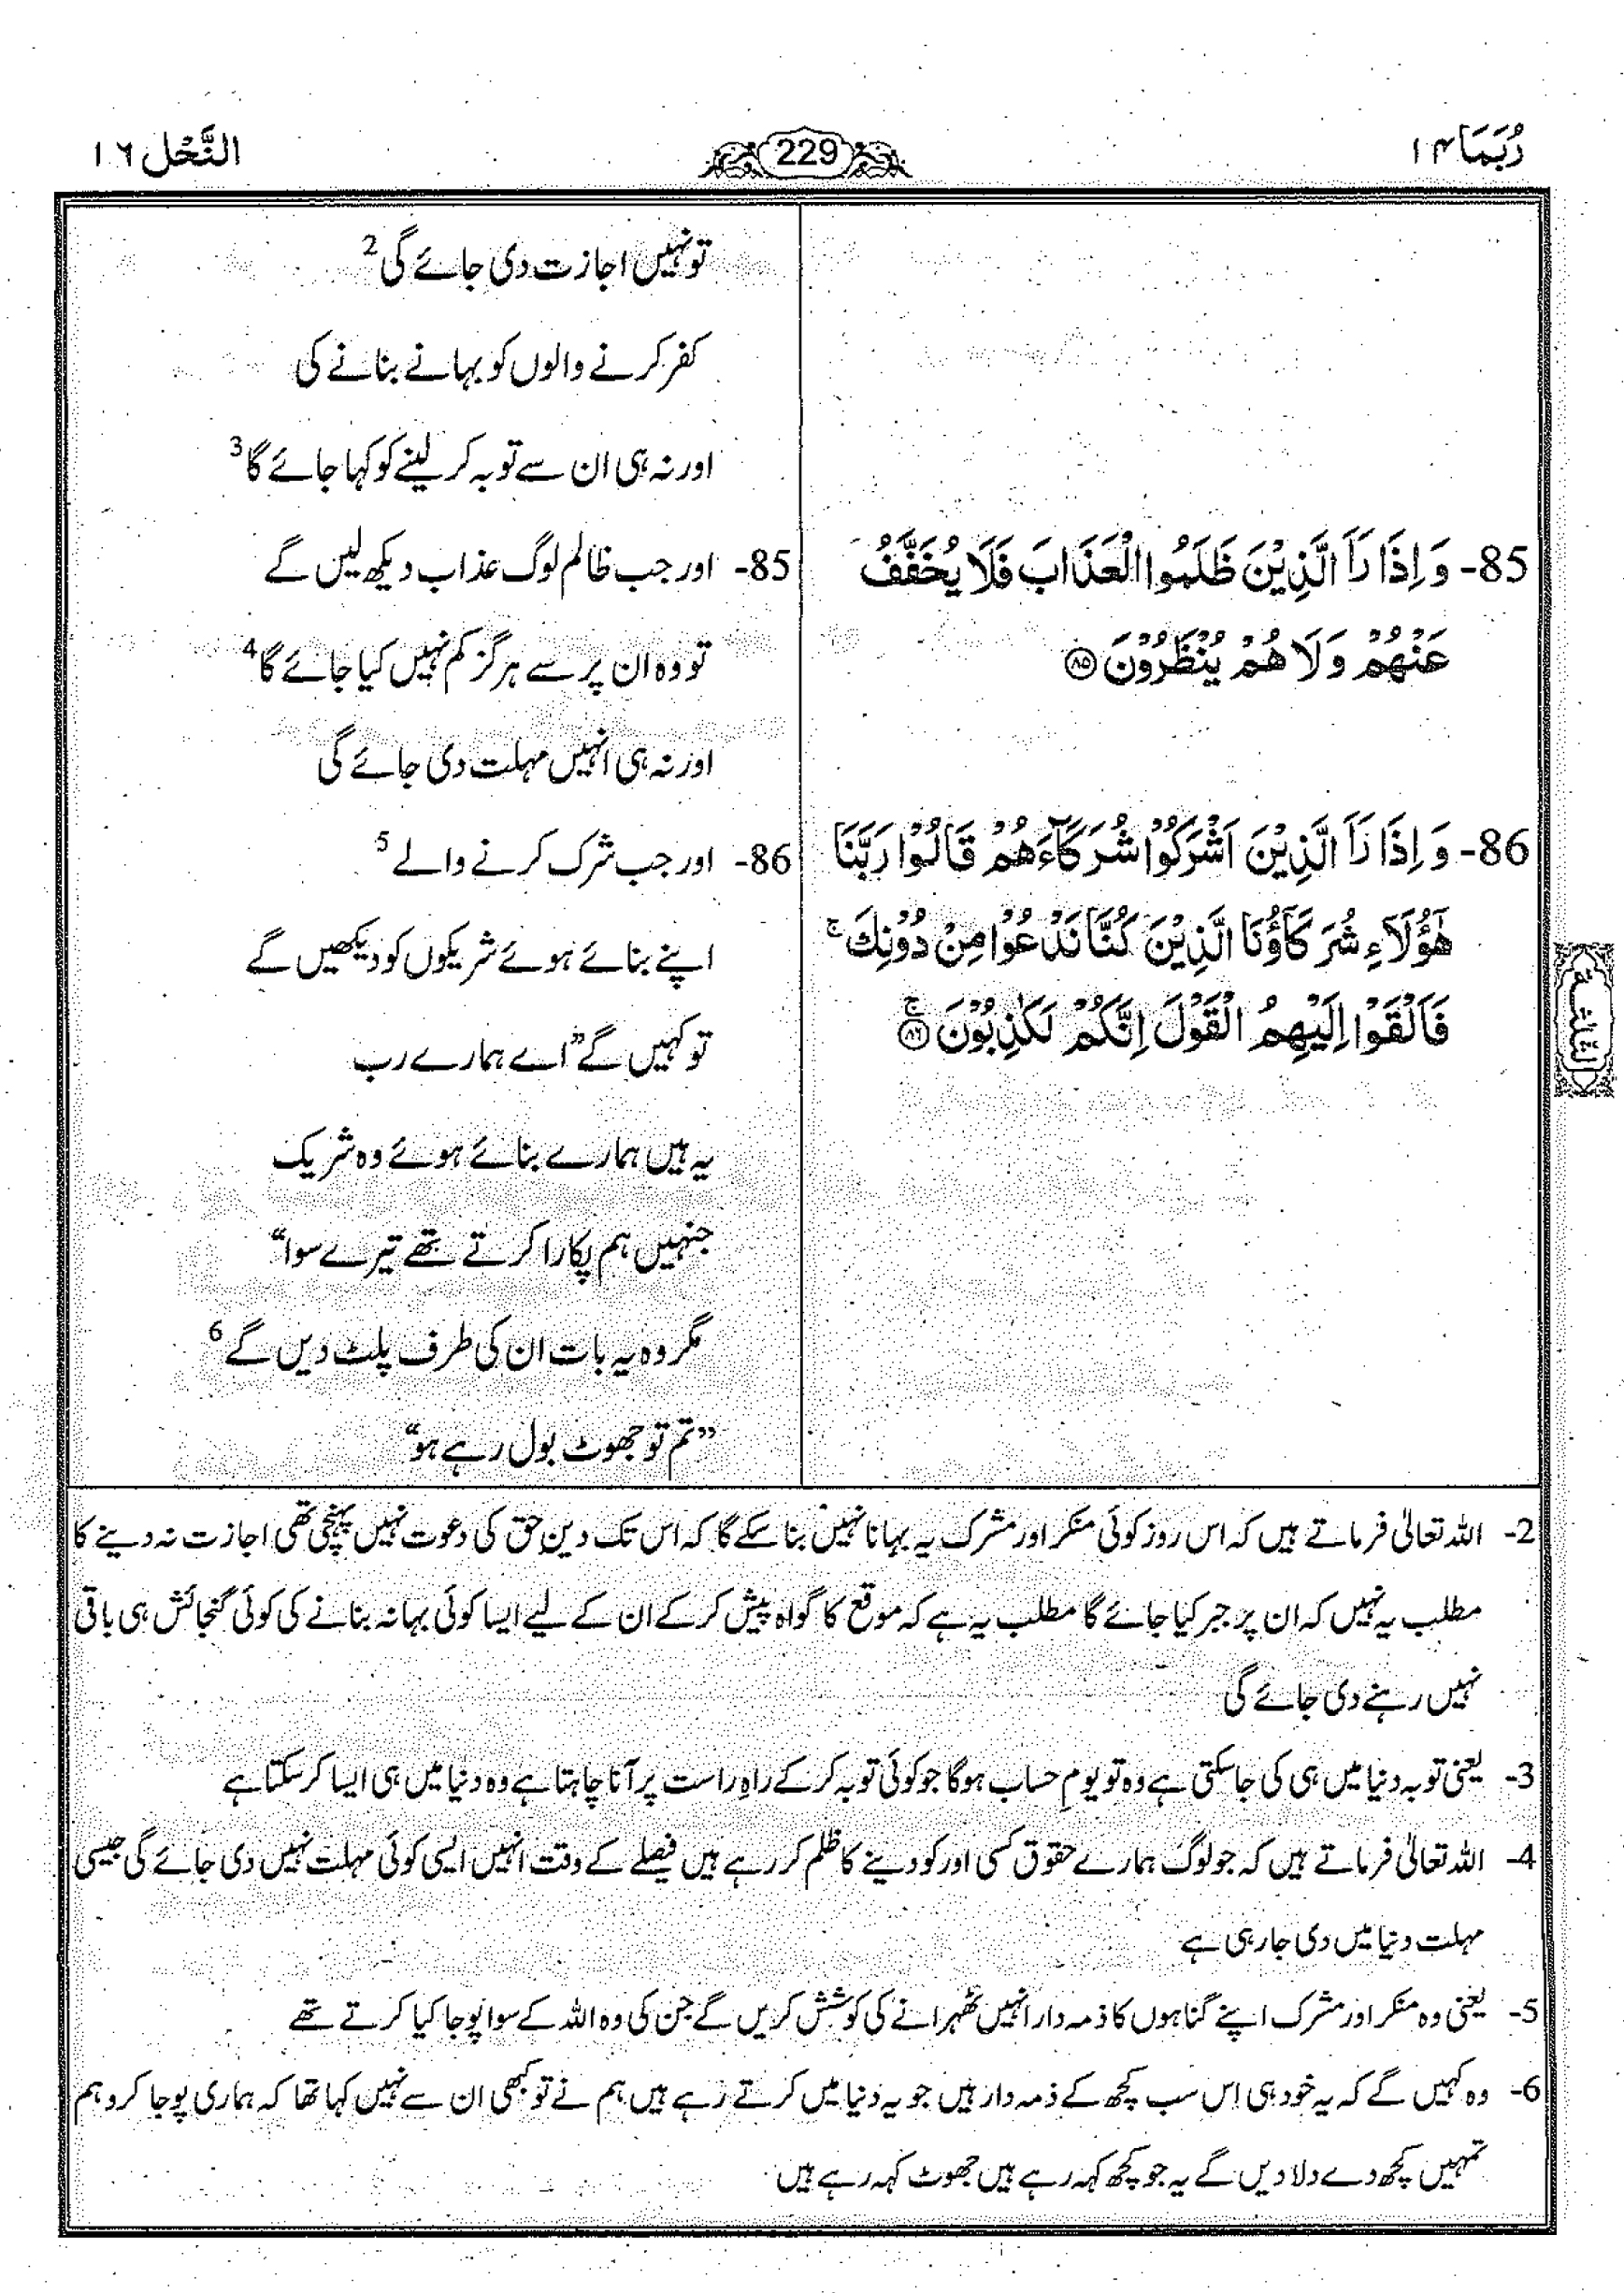 رُبَمَا ۱۴
229
النَّحْل ۱۶
تو نہیں اجازت دی جائے گی 2
کفر کرنے والوں کو بہانے بنانے کی
اور نہ ہی ان سے توبہ کر لینے کو کہا جائے گا 3
85- وَ اِذَا رَاَ الَّذِیْنَ ظَلَمُوا الْعَذَابَ فَلَا یُخَفَّفُ
عَنْهُمْ وَ لَا هُمْ یُنْظَرُوْنَ ﴿۸۵﴾
85- اور جب ظالم لوگ عذاب دیکھ لیں گے
تو وہ ان پر سے ہرگز کم نہیں کیا جائے گا 4
اور نہ ہی انہیں مہلت دی جائے گی
86- وَ اِذَا رَاَ الَّذِیْنَ اَشْرَكُوْا شُرَكَآءَهُمْ قَالُوْا رَبَّنَا
هٰۤؤُلَآءِ شُرَكَآؤُنَا الَّذِیْنَ كُنَّا نَدْعُوْا مِنْ دُوْنِكَ ۚ
فَاَلْقَوْا اِلَیْهِمُ الْقَوْلَ اِنَّكُمْ لَكٰذِبُوْنَ ﴿۸۶﴾ ۚ
86- اور جب شرک کرنے والے 5
اپنے بنائے ہوئے شریکوں کو دیکھیں گے
تو کہیں گے ”اے ہمارے رب
یہ ہیں ہمارے بنائے ہوئے وہ شریک
جنہیں ہم پکارا کرتے تھے تیرے سوا“
مگر وہ یہ بات ان کی طرف پلٹ دیں گے 6
”تم تو جھوٹ بول رہے ہو“
2- اللہ تعالیٰ فرماتے ہیں کہ اس روز کوئی منکر اور مشرک یہ بہانا نہیں بنا سکے گا کہ اس تک دینِ حق کی دعوت نہیں پہنچی تھی اجازت نہ دینے کا
مطلب یہ نہیں کہ ان پر جبر کیا جائے گا مطلب یہ ہے کہ موقع کا گواہ پیش کر کے ان کے لیے ایسا کوئی بہانہ بنانے کی کوئی گنجائش ہی باقی
نہیں رہنے دی جائے گی
3- یعنی توبہ دنیا میں ہی کی جا سکتی ہے وہ تو یومِ حساب ہوگا جو کوئی توبہ کر کے راہِ راست پر آنا چاہتا ہے وہ دنیا میں ہی ایسا کر سکتا ہے
4- اللہ تعالیٰ فرماتے ہیں کہ جو لوگ ہمارے حقوق کسی اور کو دینے کا ظلم کر رہے ہیں فیصلے کے وقت انہیں ایسی کوئی مہلت نہیں دی جائے گی جیسی
مہلت دنیا میں دی جا رہی ہے
5- یعنی وہ منکر اور مشرک اپنے گناہوں کا ذمہ دار انہیں ٹھہرانے کی کوشش کریں گے جن کی وہ اللہ کے سوا پوجا کیا کرتے تھے
6- وہ کہیں گے کہ یہ خود ہی اس سب کچھ کے ذمہ دار ہیں جو یہ دنیا میں کرتے رہے ہیں ہم نے تو کبھی ان سے نہیں کہا تھا کہ ہماری پوجا کرو ہم
تمہیں کچھ دے دلا دیں گے یہ جو کچھ کہہ رہے ہیں جھوٹ کہہ رہے ہیں